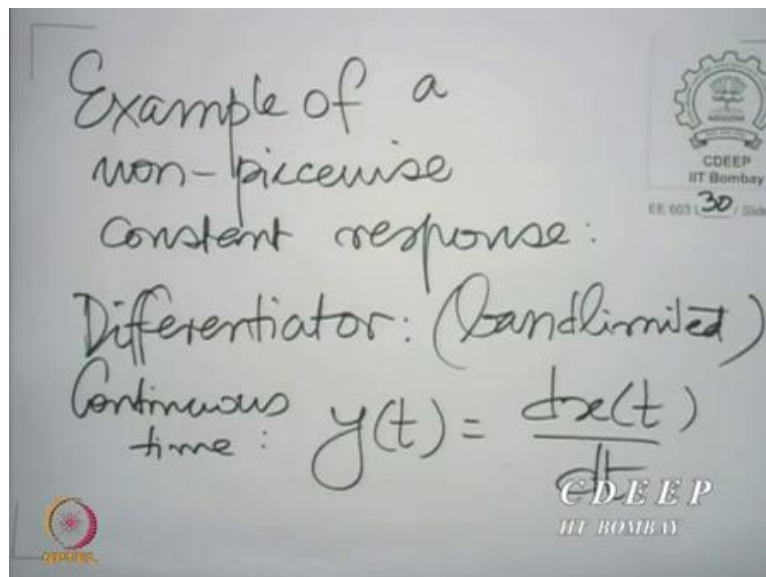 Example of a
non-piecewise
constant response:
Differentiator: (bandlimited)
Continuous time: y(t) = dx(t)/dt
CDEEP
IIT Bombay
EE 603 L 30 / Slide
CDEEP
IIT BOMBAY
NPTEL